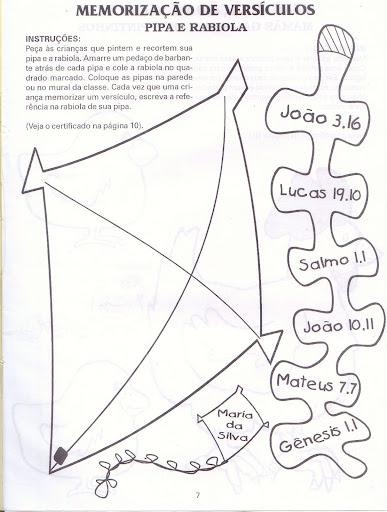 MEMORIZAÇÃO DE VERSÍCULOS
PIPA E RABIOLA
INSTRUÇÕES:
Peça às crianças que pintem e recortem sua
pipa e a rabiola. Amarre um pedaço de barban-
te atrás de cada pipa e cole a rabiola no qua-
drado marcado. Coloque as pipas na parede
ou no mural da classe. Cada vez que uma cri-
ança memorizar um versículo, escreva a refe-
rência na rabiola de sua pipa.
(Veja o certificado na página 10).
João 3.16
Lucas 19.10
Salmo 1.1
João 10.11
Mateus 7.7
Gênesis 1.1
Maria
da
Silva
7